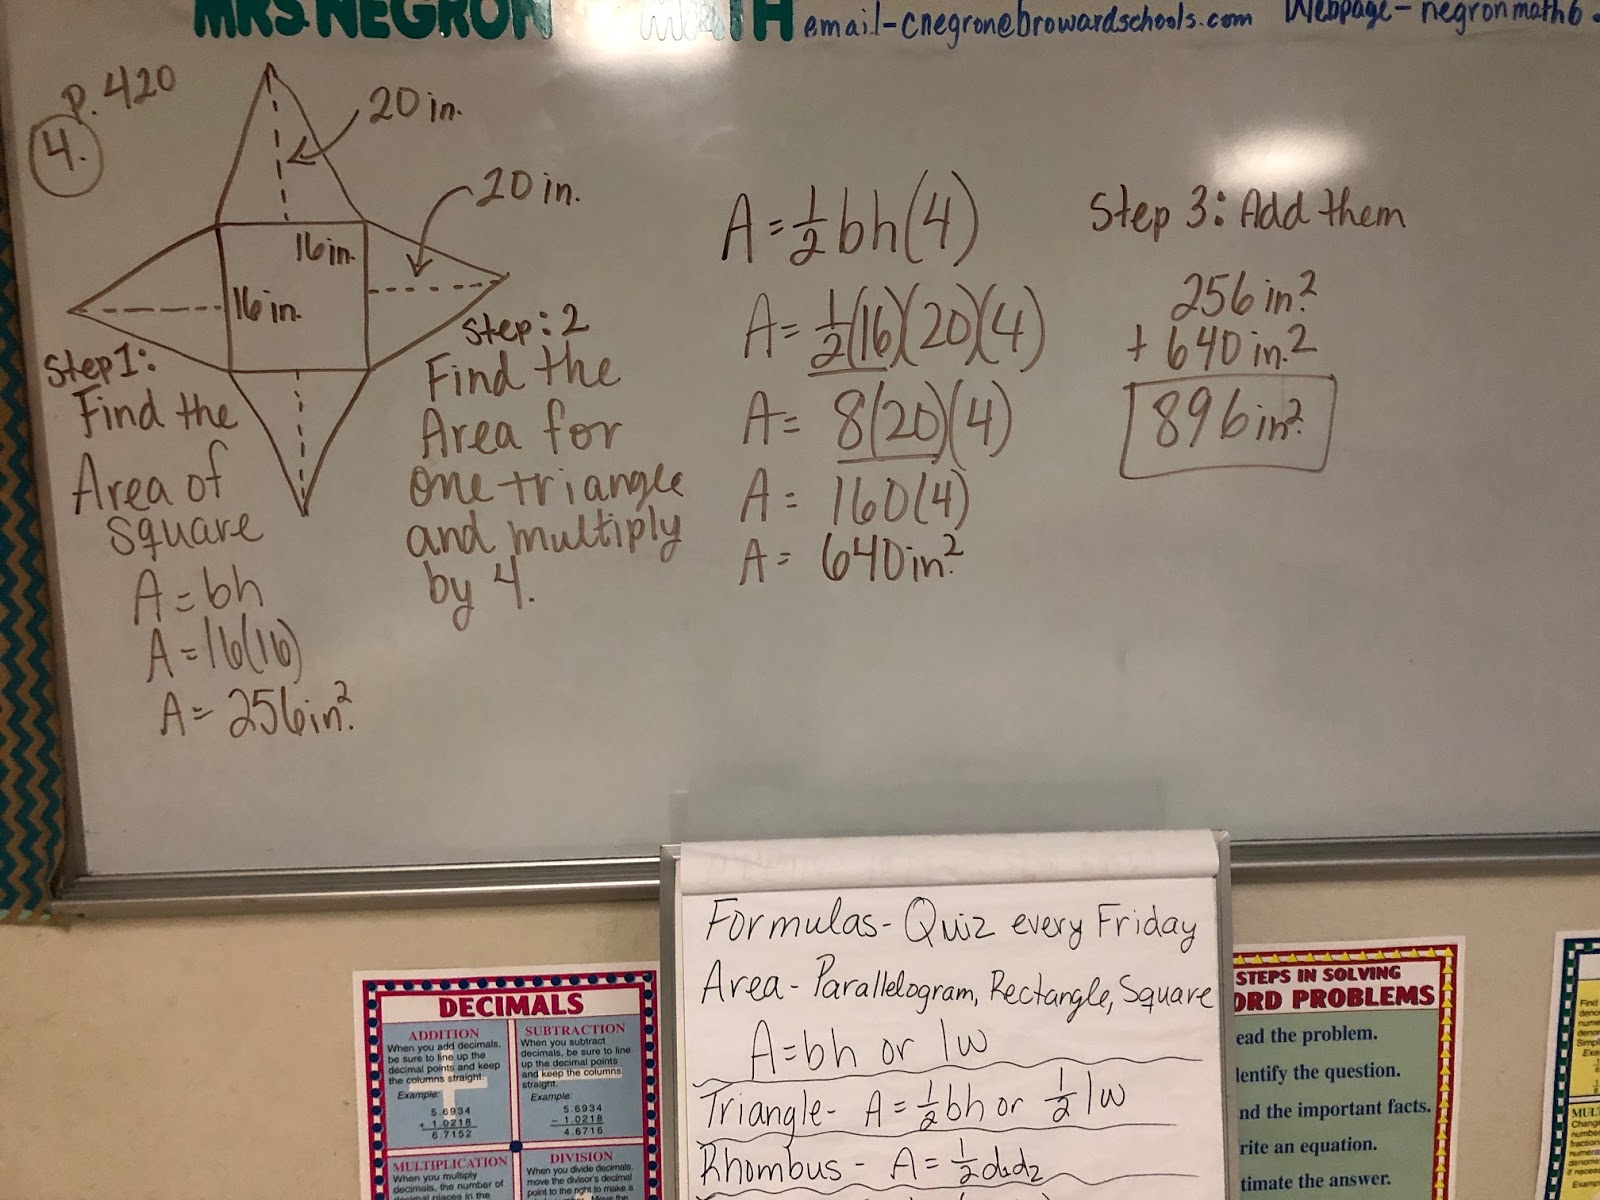 MRS. NEGRON MATH email-cnegron@browardschools.com Webpage-negronmath6.
P. 420
4.
20 in.
20 in.
16 in.
16 in.
Step 1:
Find the
Area of
Square
A = bh
A = 16(16)
A = 256 in².
Step: 2
Find the
Area for
one triangle
and multiply
by 4.
A = ½ bh (4)
A = ½(16)(20)(4)
A = 8(20)(4)
A = 160(4)
A = 640 in²
Step 3: Add them
256 in²
+ 640 in.²
896 in².
Formulas- Quiz every Friday
Area - Parallelogram, Rectangle, Square
A = bh or lw
Triangle- A = ½ bh or ½ lw
Rhombus - A = ½ d₁d₂
DECIMALS
ADDITION
When you add decimals,
be sure to line up the
decimal points and keep
the columns straight.
Example:
5.6934
+ 1.0218
6.7152
SUBTRACTION
When you subtract
decimals, be sure to line
up the decimal points
and keep the columns
straight.
Example:
5.6934
- 1.0218
4.6716
MULTIPLICATION
When you multiply
decimals, the number of
decimal places in the
DIVISION
When you divide decimals,
move the divisor's decimal
point to the right to make a
STEPS IN SOLVING
ORD PROBLEMS
ead the problem.
dentify the question.
nd the important facts.
rite an equation.
timate the answer.
Find